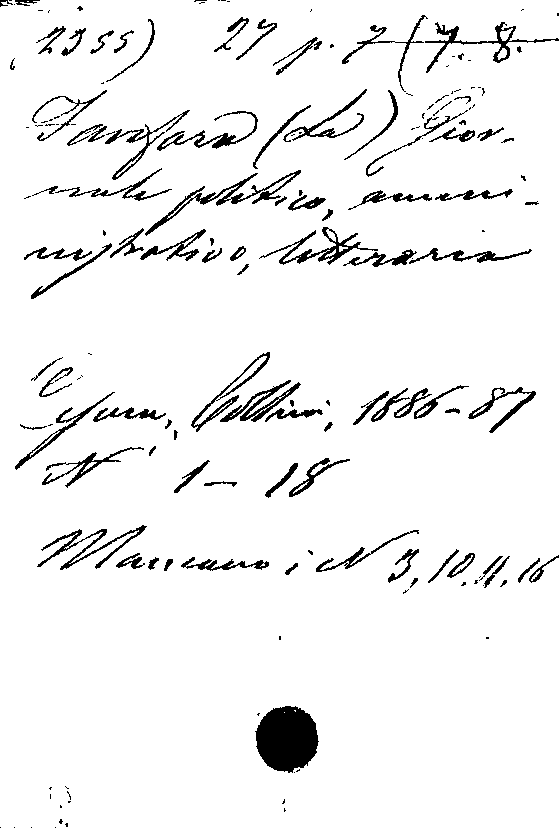 2355) 27 p. 7 (7. 8.
Fanfara (La) Gior-
nale politico, ammi-
nistrativo, letteraria
Cellini, 1886-87
N 1 - 18
Mancano i N 3, 10, 11, 16